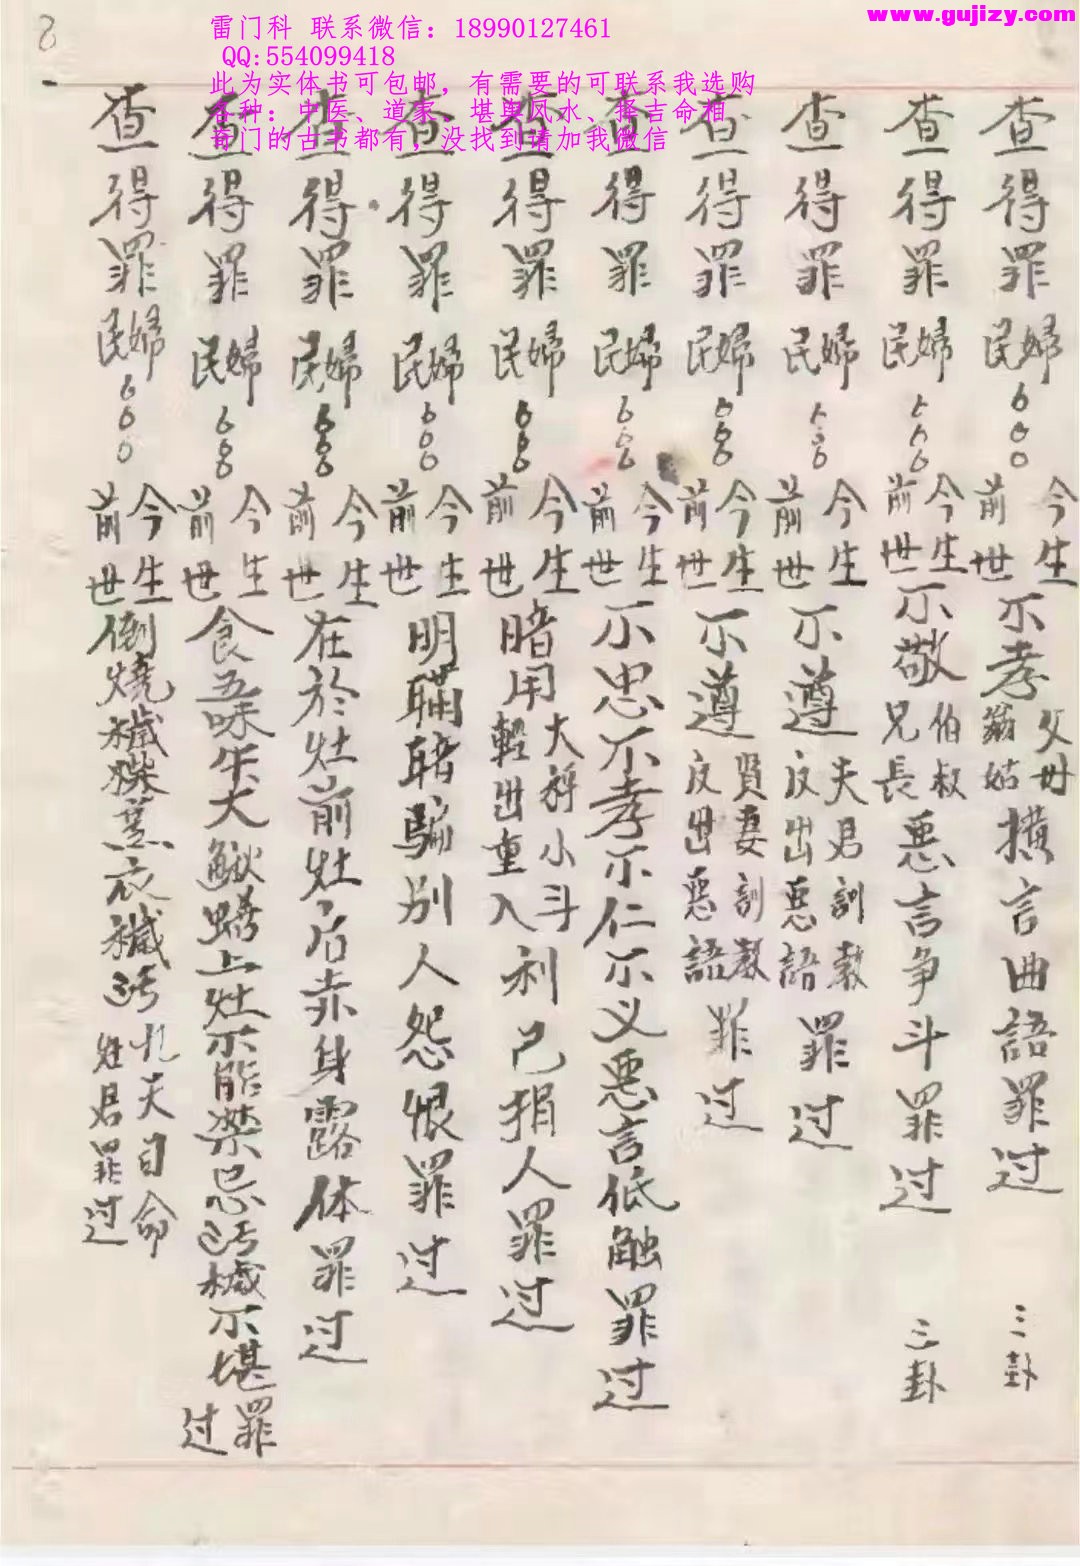 www.gujizy.com
雷门科 联系微信：18990127461
QQ:554099418
此为实体书可包邮，有需要的可联系我选购
各种：中医、道家、堪舆风水、择吉命相
奇门的古书都有，没找到请加我微信
查得罪民婦ooo今生前世不孝父母翁姑横言曲語罪过 三卦
查得罪民婦ooo今生前世不敬伯叔兄長惡言争斗罪过 三卦
查得罪民婦ooo今生前世不遵夫君訓教反出惡語罪过
查得罪民婦ooo今生前世不遵賢妻訓教反出惡語罪过
查得罪民婦ooo今生前世不忠不孝不仁不义惡言低触罪过
查得罪民婦ooo今生前世暗用大秤小斗輕出重入利己捐人罪过
查得罪民婦ooo今生前世明瞞暗騙别人怨恨罪过
查得罪民婦ooo今生前世在於灶前灶后赤身露体罪过
查得罪民婦ooo今生前世食五味牛犬鰍鱔上灶不能禁忌污穢不堪罪过
查得罪民婦ooo今生前世倒燒穢柴薰衣穢污九天司命灶君罪过